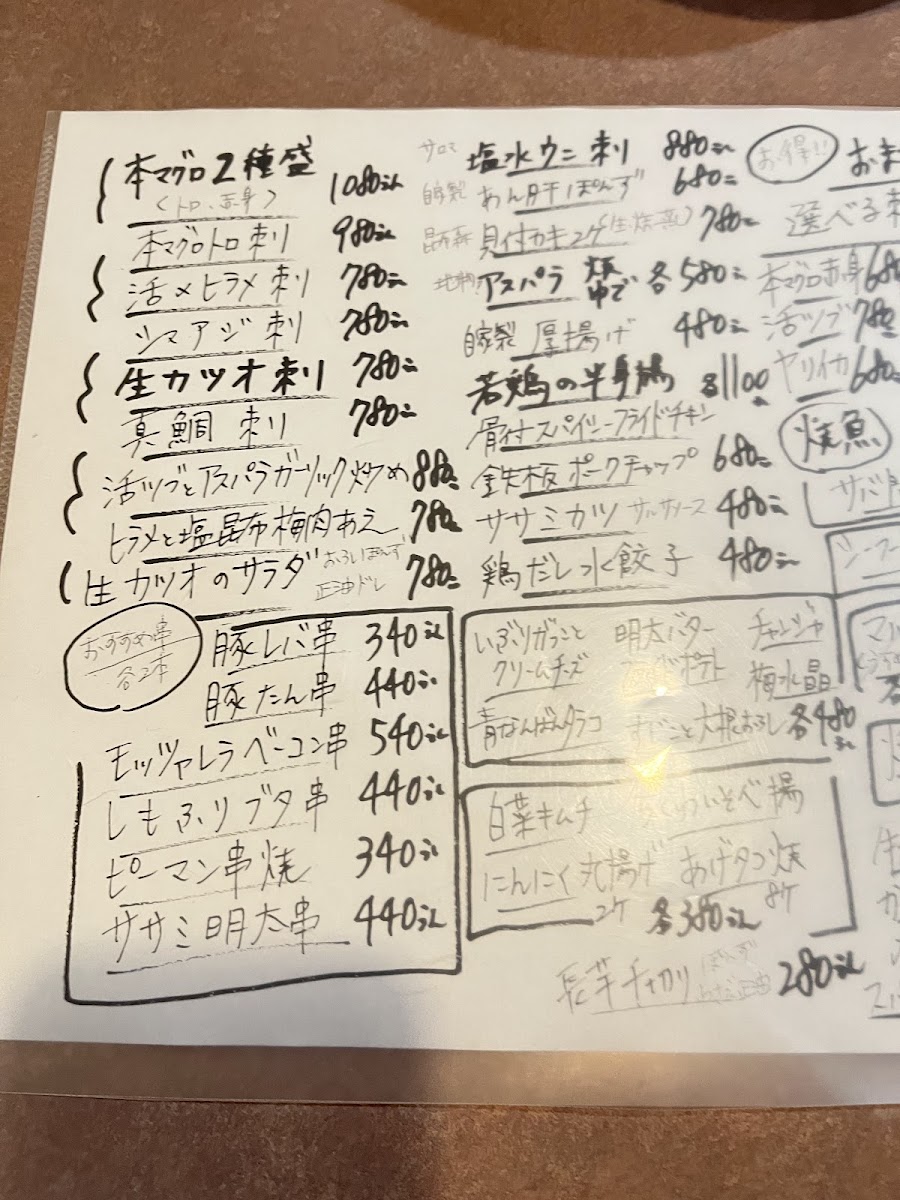 本マグロ2種盛 1080えん
(トロ、赤身)
本マグロトロ刺 980えん
活〆ヒラメ刺 780えん
シマアジ刺 780えん
生カツオ刺 780えん
真鯛刺 780えん
活ツブとアスパラガーリック炒め 880えん
ヒラメと塩昆布梅肉あえ 780えん
生カツオのサラダ おろしぽんず 正油ドレ 780えん
おすすめ串
各2本
豚レバ串 340えん
豚たん串 440えん
モッツァレラベーコン串 540えん
しもふりブタ串 440えん
ピーマン串焼 340えん
ササミ明太串 440えん
サロマ 塩水ウニ刺 880えん
自家製 あん肝ぽんず 680えん
昆布森 貝付カキ2ケ(生・焼・蒸) 780えん
アスパラ 各580えん
自家製 厚揚げ 480えん
若鶏の半身揚 1100
骨付スパイシーフライドチキン
鉄板ポークチャップ 680えん
ササミカツ サルサソース 480えん
鶏だし水餃子 480えん
いぶりがっことクリームチーズ
明太バター ポテト
チャンジャ
梅水晶
青なんばんタラコ
すじこと大根おろし 各480えん
白菜キムチ
いそべ揚
にんにく丸揚げ 2ケ
あげタコ焼 8ケ
各380えん
長芋千切り 280えん
お得!!
選べる
本マグロ赤身 680
活ツブ 780
ヤリイカ 680
焼魚
サバ